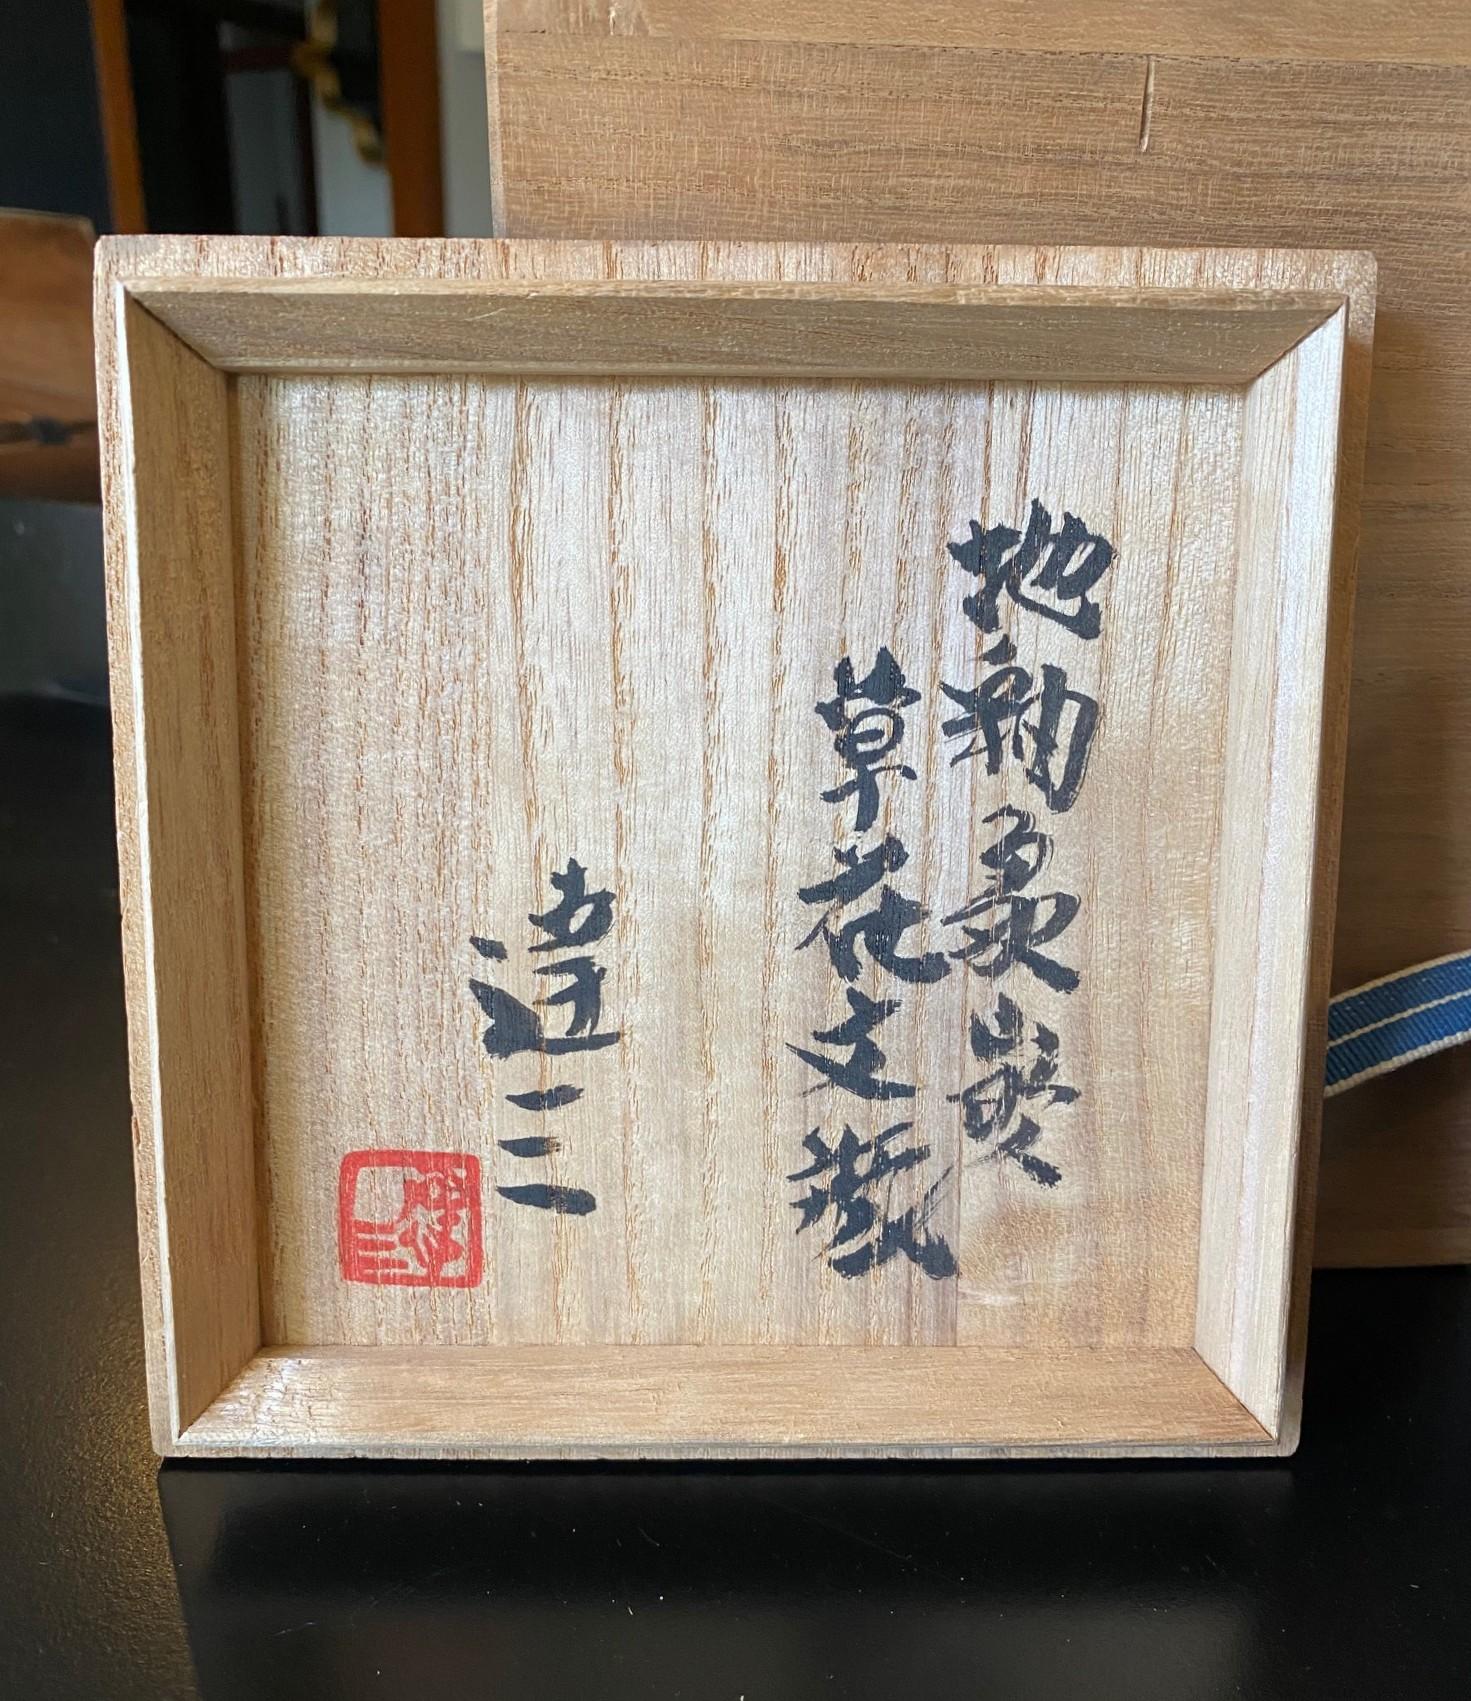 地釉象嵌
草花文瓶
達三